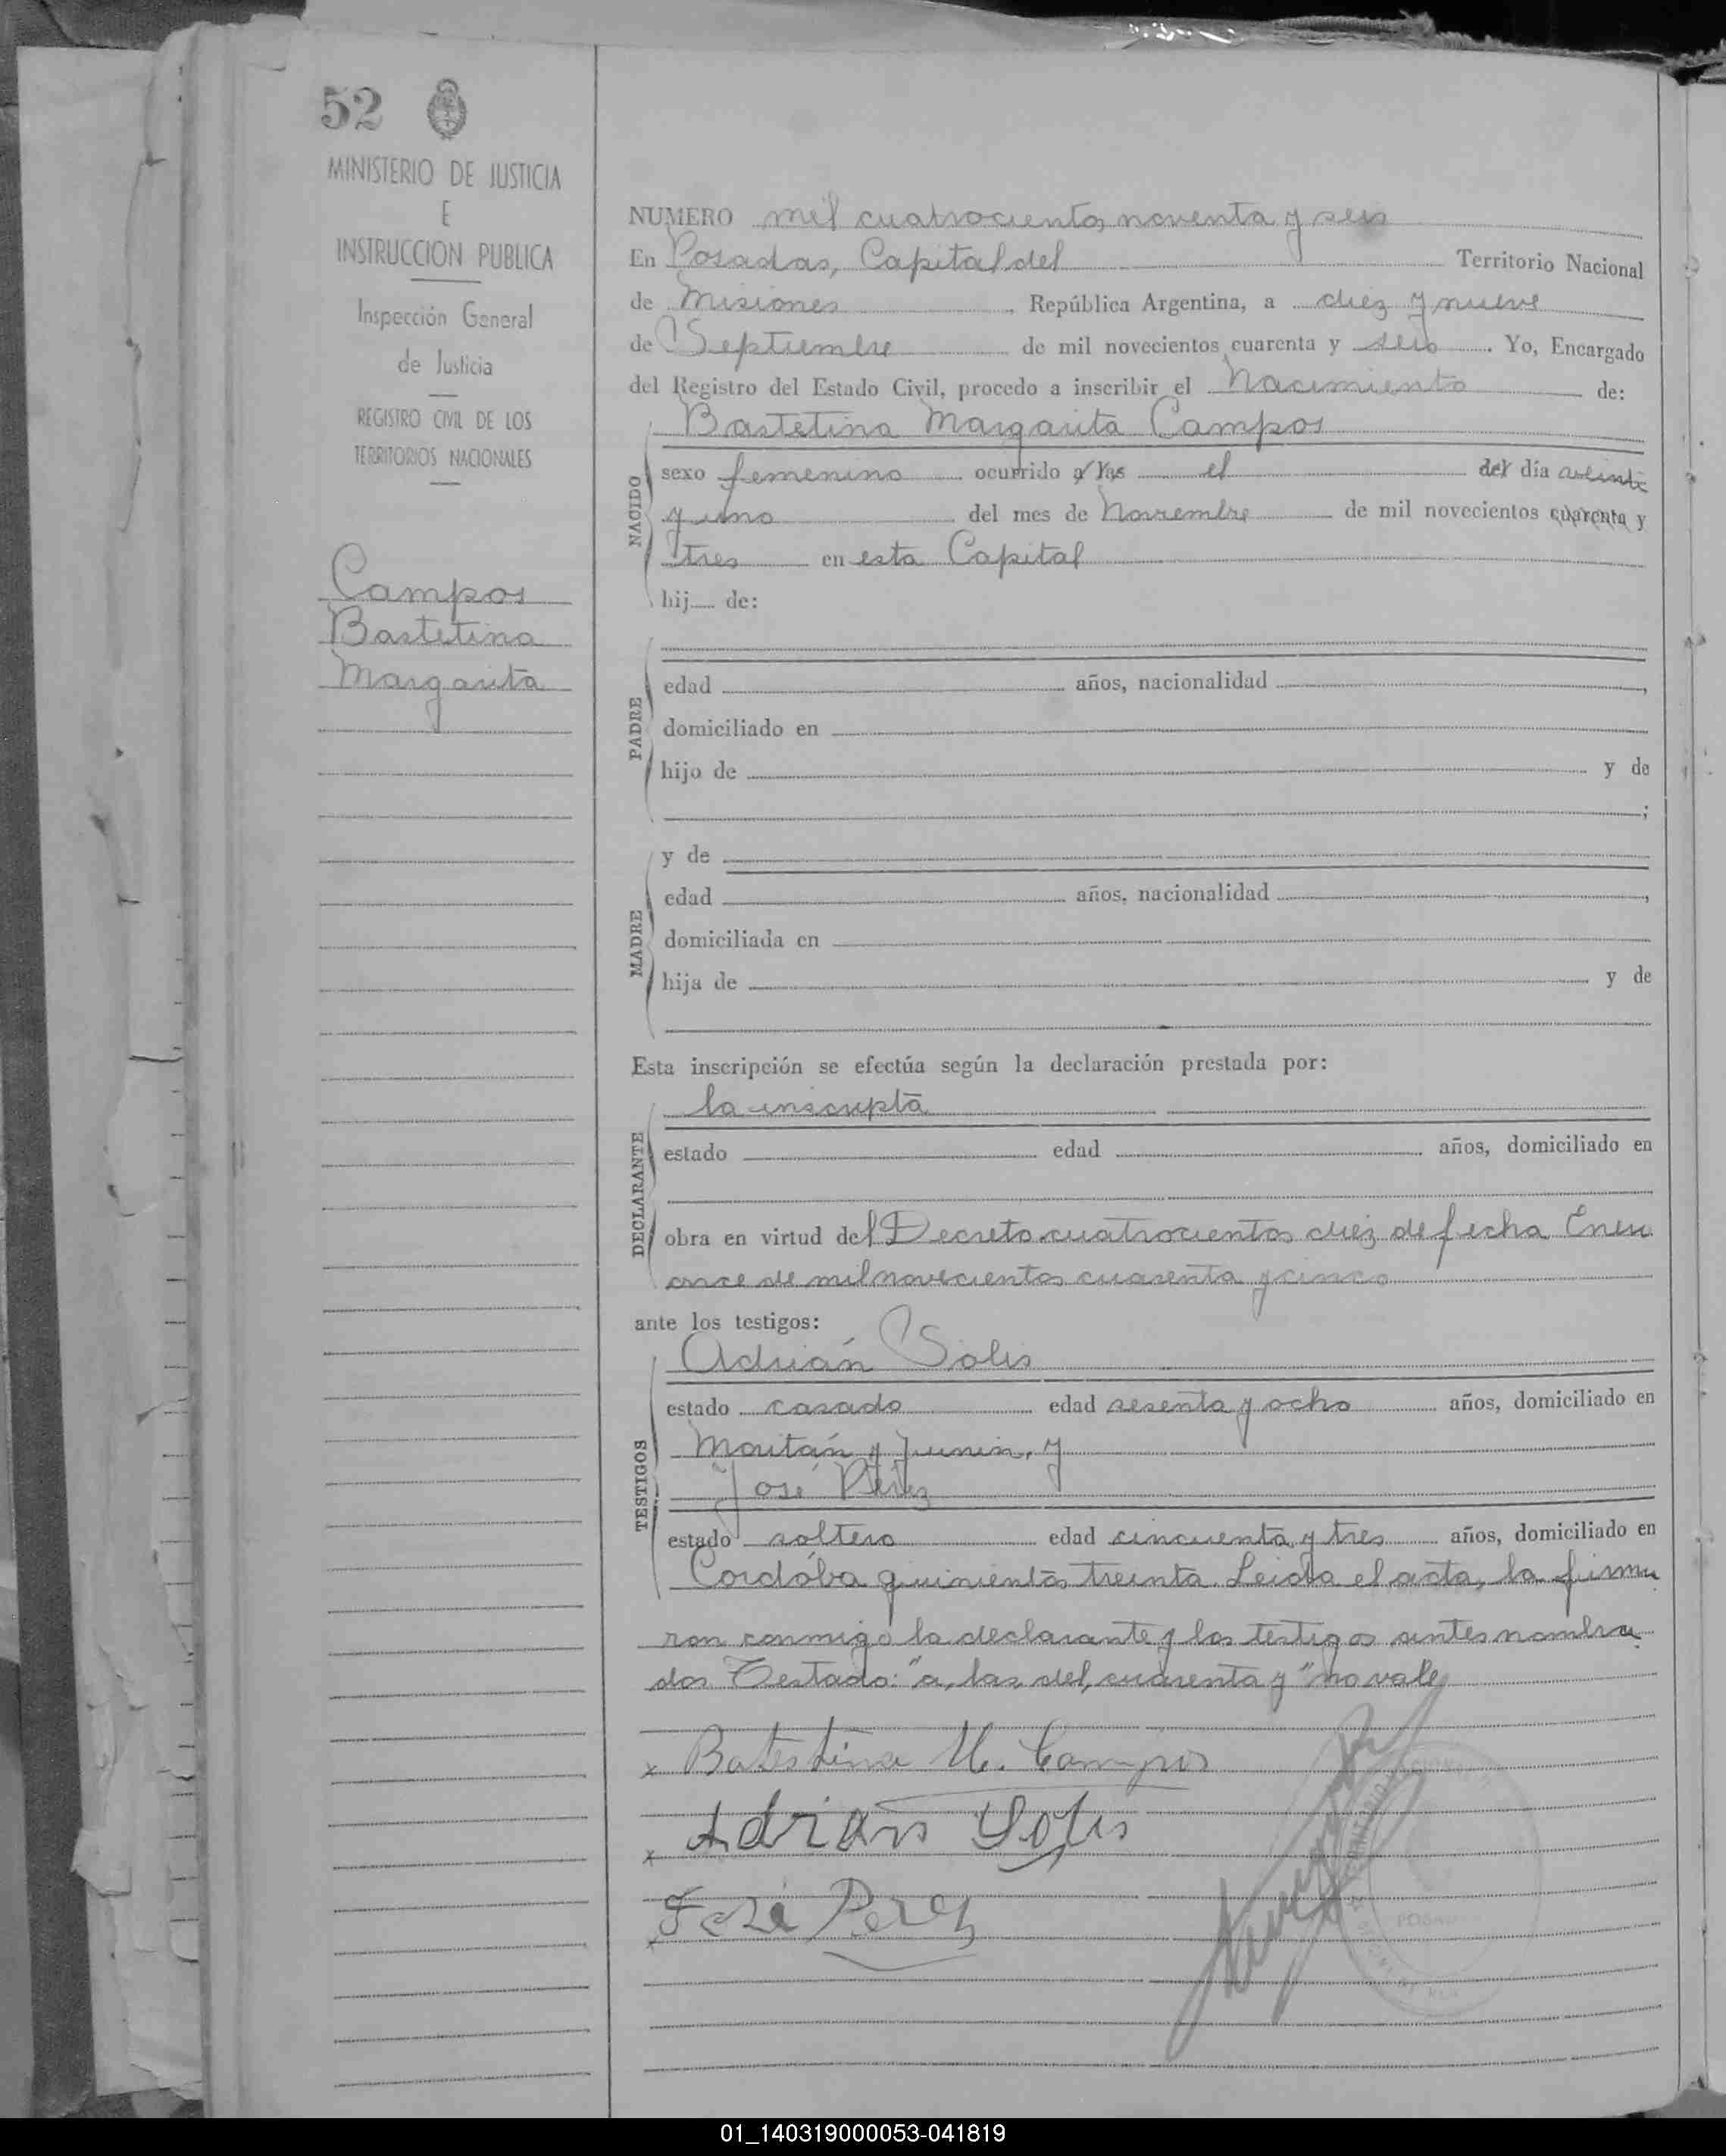 52
MINISTERIO DE JUSTICIA
E
INSTRUCCION PUBLICA
Inspección General
de Justicia
REGISTRO CIVIL DE LOS
TERRITORIOS NACIONALES
Campos
Bastetina
Margarita
NUMERO mil cuatrocientos noventa y seis
En Posadas, Capital del Territorio Nacional
de Misiones, República Argentina, a diez y nueve
de Septiembre de mil novecientos cuarenta y seis. Yo, Encargado
del Registro del Estado Civil, procedo a inscribir el Nacimiento de:
Bastetina Margarita Campos
NACIDO
sexo femenino ocurrido a las el del día veinti
y uno del mes de Noviembre de mil novecientos cuarenta y
tres en esta Capital
hij de:
PADRE
edad años, nacionalidad ,
domiciliado en
hijo de y de
;
MADRE
y de
edad años, nacionalidad ,
domiciliada en
hija de y de
Esta inscripción se efectúa según la declaración prestada por:
DECLARANTE
la inscripta
estado edad años, domiciliado en
obra en virtud del Decreto cuatrocientos diez de fecha Enero
once de mil novecientos cuarenta y cinco
ante los testigos:
TESTIGOS
Adrián Solis
estado casado edad sesenta y ocho años, domiciliado en
y Junin, y
José Pérez
estado soltero edad cincuenta y tres años, domiciliado en
Cordóba quinientos treinta. Leida el acta, la firma
ron conmigo la declarante y los testigos antes nombra
dos Testado: "a, las, del, cuarenta y" no vale
x Batestina M. Campos
x Adrian Solis
x José Perez
POSADAS
01_140319000053-041819